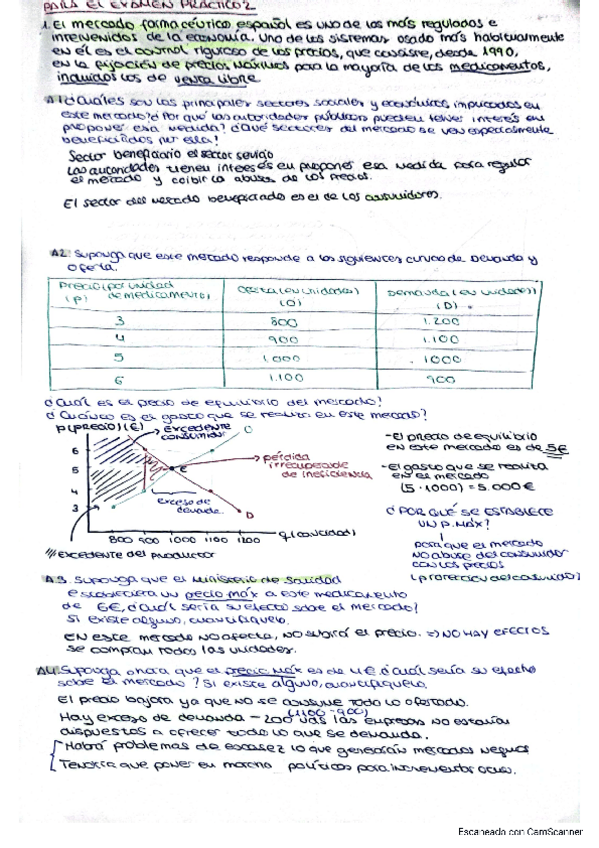 PARA EL EXAMEN PRÁCTICO 2
1. El mercado farmacéutico español es uno de los más regulados e
intervenidos de la economía. Uno de los sistemas usado más habitualmente
en él es el control riguroso de los precios, que consiste, desde 1990,
en la fijación de precios máximos para la mayoría de los medicamentos,
incluidos los de venta libre
A.1 ¿Cuáles son los principales sectores sociales y económicos implicados en
este mercado? ¿Por qué las autoridades públicas pueden tener interés en
proponer esa medida? ¿Qué sectores del mercado se ven especialmente
beneficiados por ella?
Sector beneficiario el sector
Las autoridades tienen interés en proponer esa medida para regular
el mercado y cohibir la abusos de los precios.
El sector del mercado beneficiado es el de los consumidores.
A2. Suponga que este mercado responde a las siguientes curvas de Demanda y
Oferta.
Precio (por unidad de medicamento) (P) Oferta (en unidades) (O) Demanda (en unidades) (D)
3 800 1.200
4 900 1.100
5 1.000 1000
6 1.100 900
¿Cuál es el precio de equilibrio del mercado?
¿Cuánto es el gasto que se realiza en este mercado?
P(precio)(€) excedente consumidor O
6
5
4
3
e
pérdida irrecuperable de ineficiencia
exceso de demanda
D
800 900 1000 1100 1200 q(cantidad)
excedente del productor
- El precio de equilibrio
en este mercado es de 5€
- El gasto que se realiza
en el mercado
(5·1000) = 5.000€
¿POR QUÉ SE ESTABLECE
UN P. MÁX?
para que el mercado
no abuse del consumidor
con los precios
(protección del consumido)
A.3. Suponga que el Ministerio de Sanidad
estableciera un precio máx a este medicamento
de 6€, ¿cuál sería su efecto sobre el mercado?
Si existe alguno, cuantifíquelo.
En este mercado no afecta, no subirá el precio. => NO HAY EFECTOS
Se compran todas las unidades.
A4. Suponga ahora que el precio máx es de 4€ ¿cuál sería su efecto
sobre el mercado? Si existe alguno, cuantifíquelo.
El precio bajara ya que no se consume todo lo ofertado.
(1100-900)
Hay exceso de demanda - 200 uds las empresas no estarían
dispuestos a ofrecer todo lo que se demanda.
Habrá problemas de escasez lo que generarían mercados negros
Tendría que poner en marcha políticas para incrementar
Escaneado con CamScanner